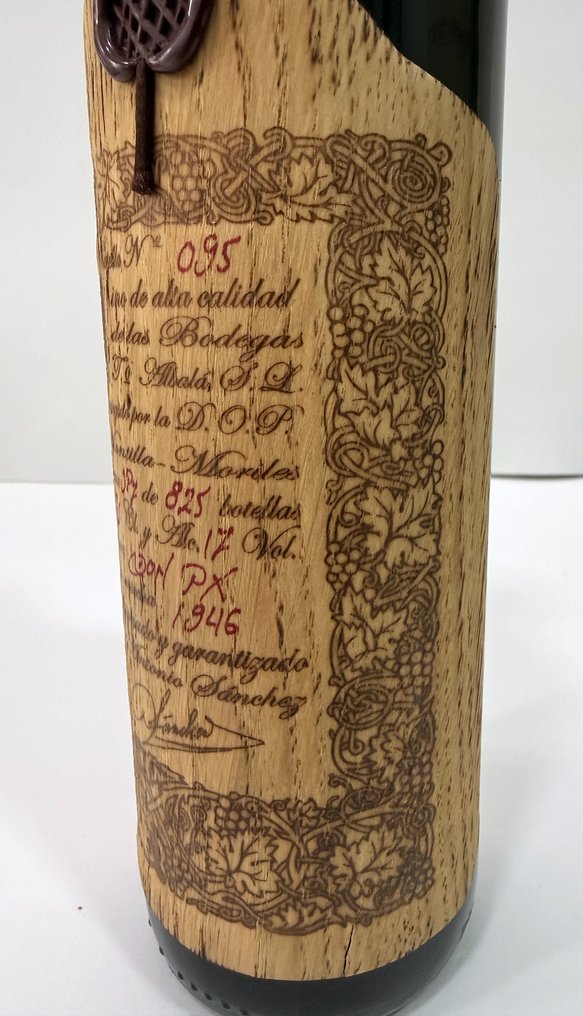 Nº 095
vino de alta calidad
de las Bodegas
Tº Albalá, S. L.
por la D. O. P.
Montilla-Moriles
de 825 botellas
y Alc. 17 Vol.
DON PX
1946
y garantizado
Antonio Sánchez
Sánchez